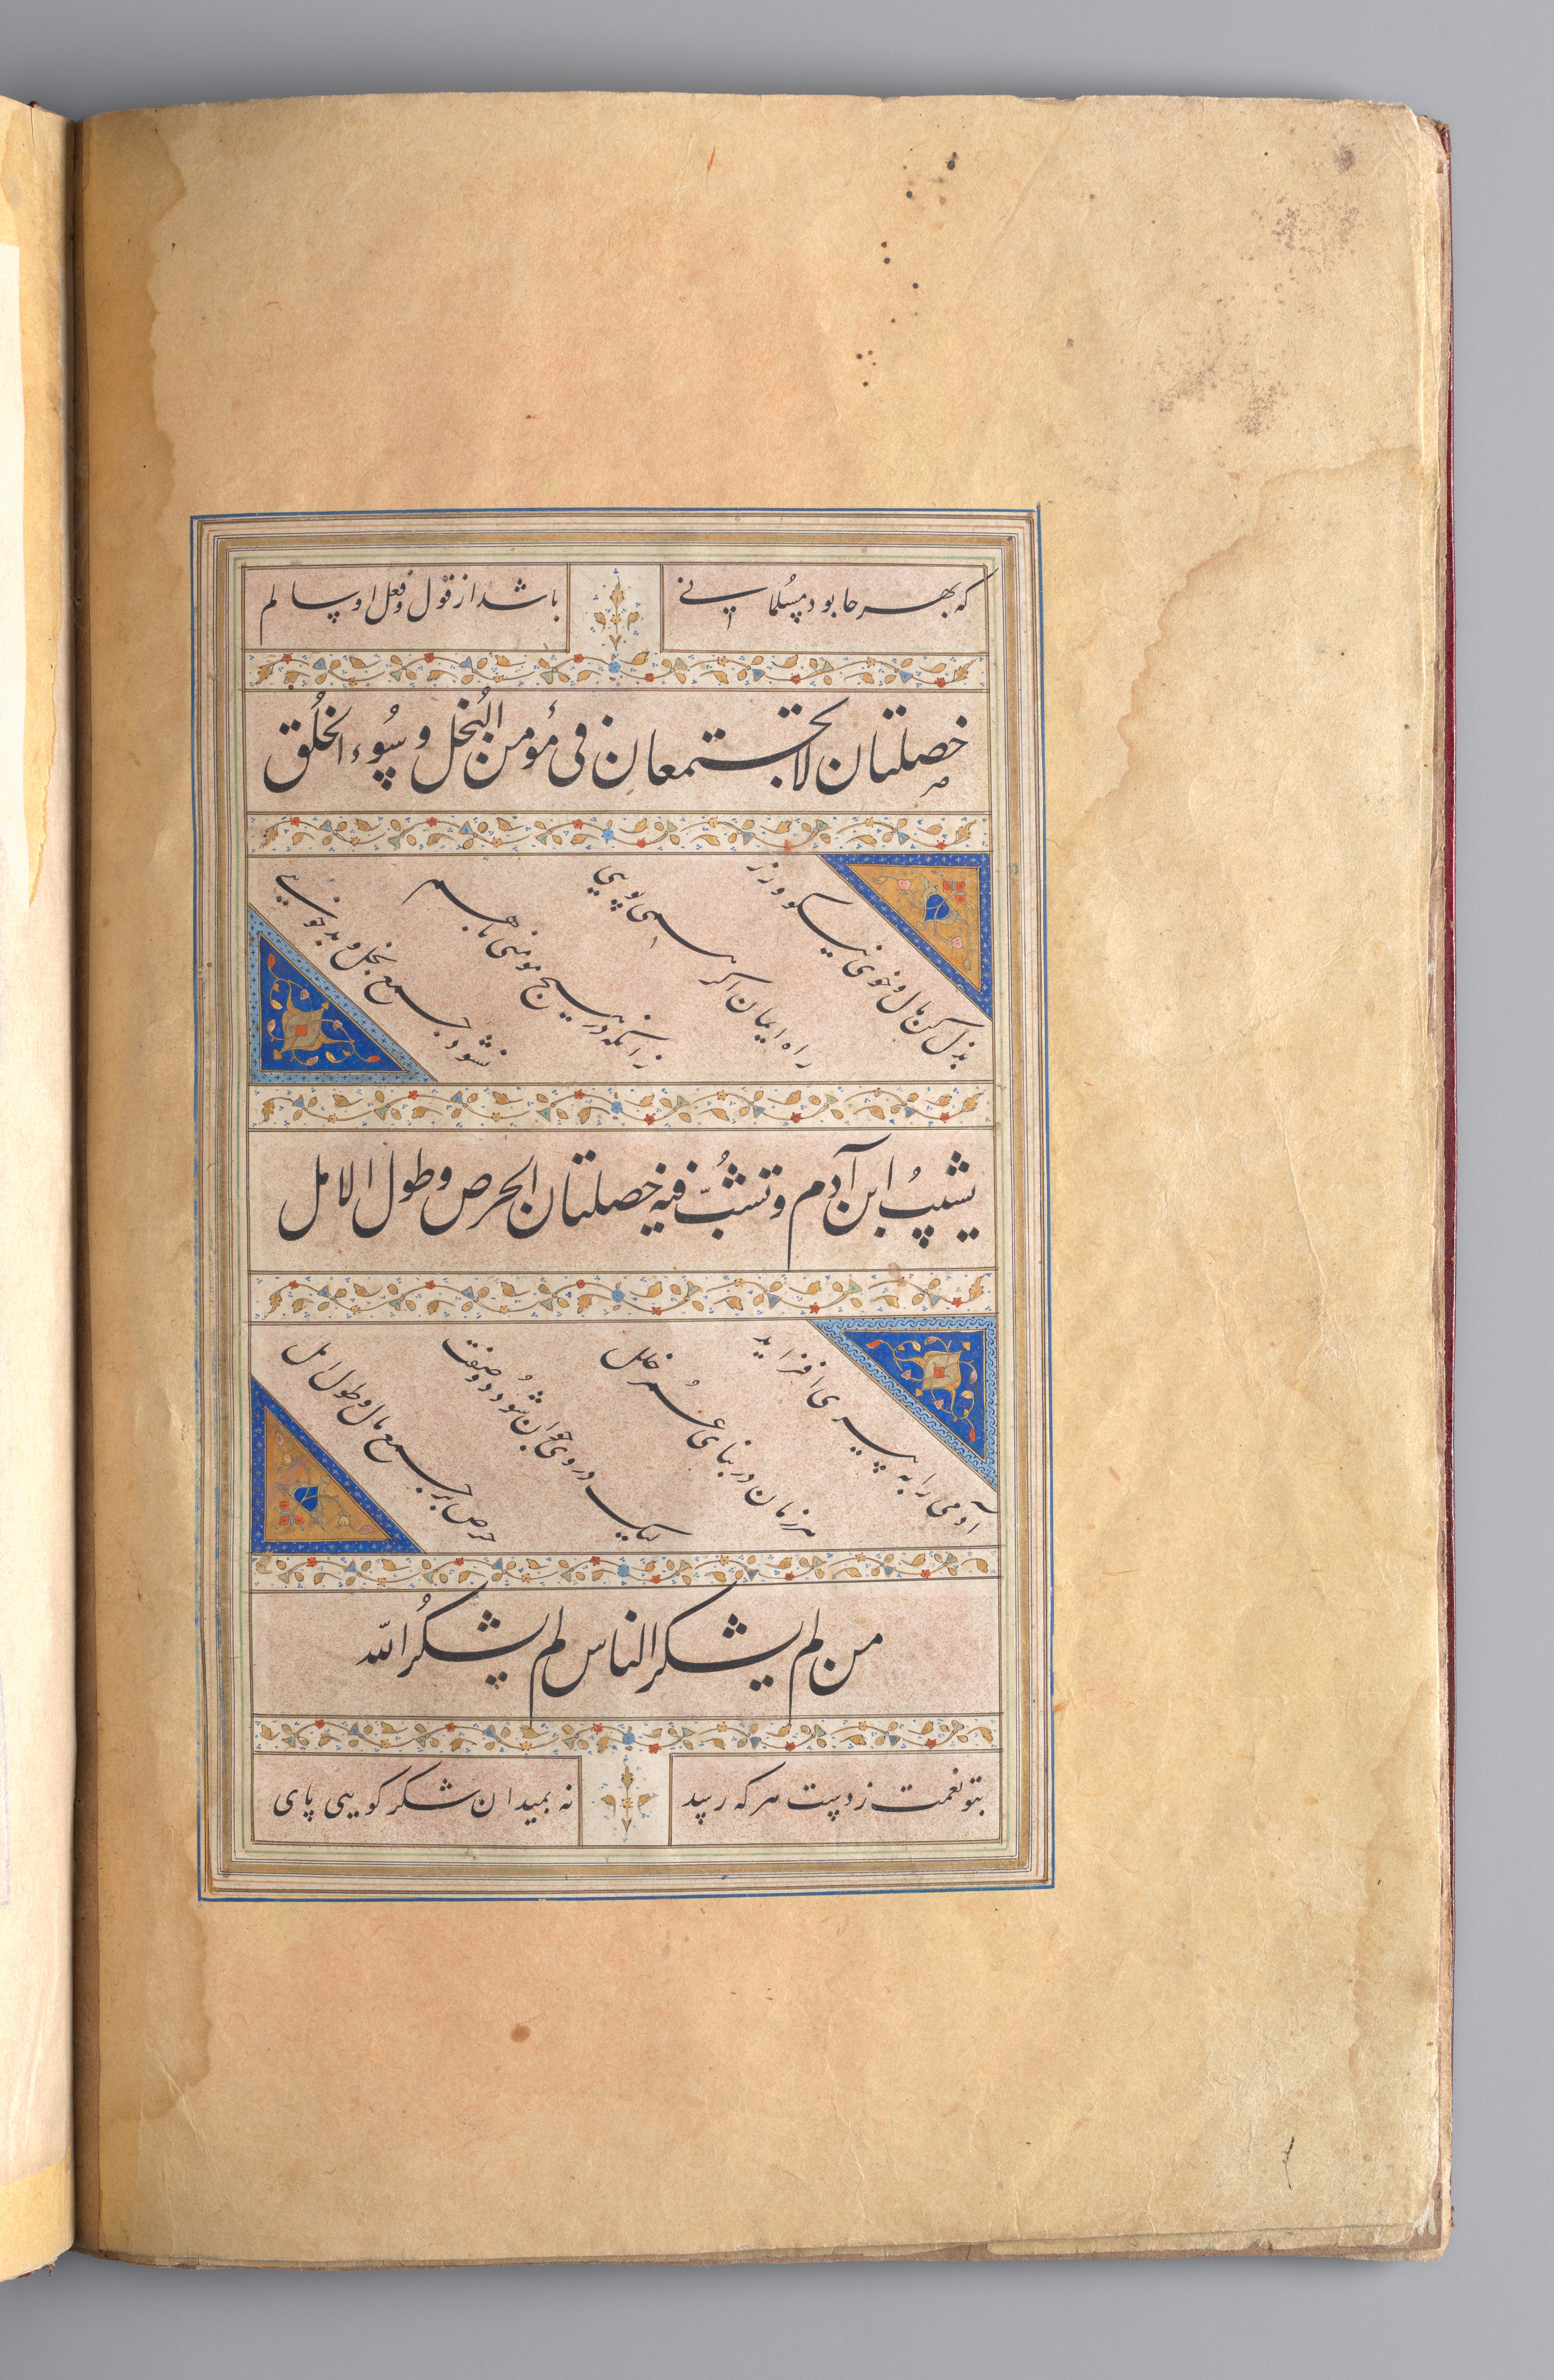 که بهر جا بود مسلمانی
باشد از قول و فعل او سالم
خصلتان لا تجتمعان فی مؤمن البُخل و سُوء الخُلق
بذل کن مال و خوی نیکو ورز
راه ایمان اکر همی پویی
زانکه در هیچ مومنی باهم
نشود جمع بخل و بدخویی
یشیبُ ابن آدم و تشُبّ فیه خصلتان الحرص و طول الامل
آدمی را به پیری افزاید
هر زمان در بنای عُمر خلل
لیک در وی جوان شُود دو صفت
حرص بر جمع مال و طول امل
من لم یشکر الناس لم یشکُر الله
بتو نعمت ز دست هر که رسید
نه بمیدان شکر کویی پای